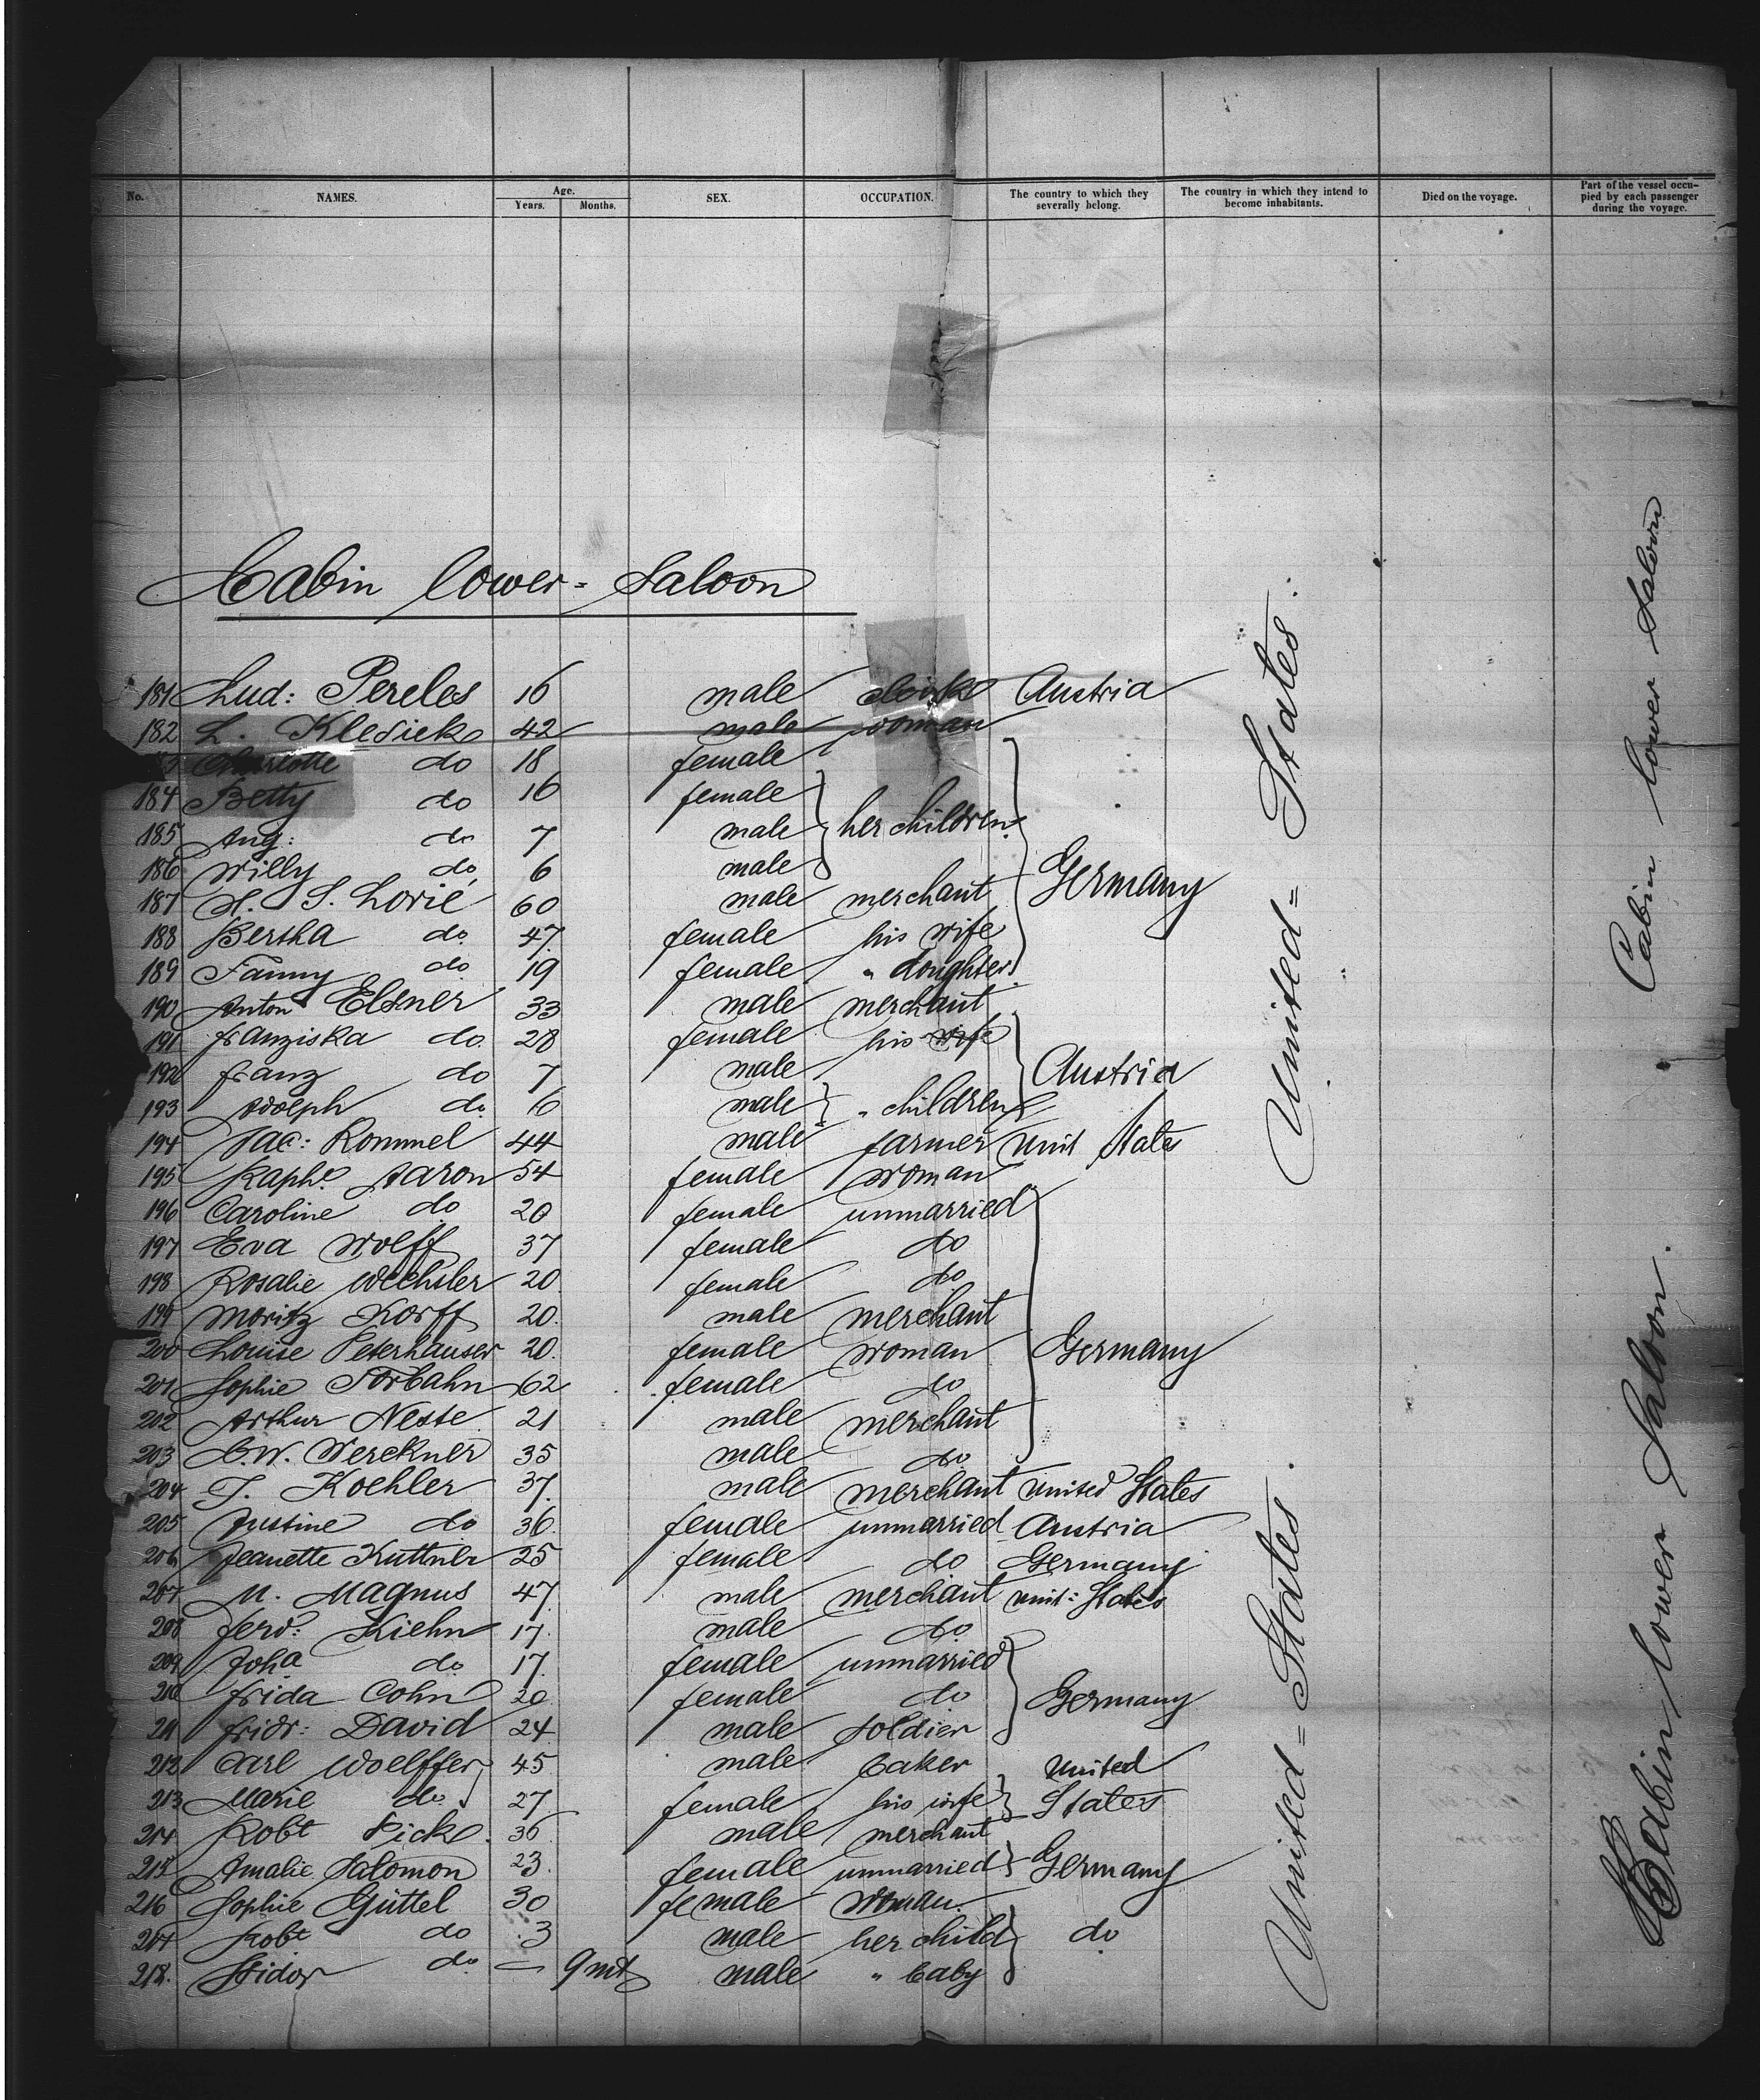 No. NAMES. Age. Years. Months. SEX. OCCUPATION. The country to which they severally belong. The country in which they intend to become inhabitants. Died on the voyage. Part of the vessel occupied by each passenger during the voyage.
Cabin lower=Saloon
181 Lud: Pereles 16 male Austria
182 L. 42 male woman
Charlotte do 18 female
184 Betty do 16 female
185 Aug: do 7 male her children
186 Willy do 6 male
187 S. Lorié 60 male merchant Germany
188 Bertha do 47 female his wife
189 Fanny do 19 female " doughter
190 Anton Elsner 33 male merchant
191 Franziska do 28 female his wife
192 Franz do 7 male Austria
193 Adolph do 6 male " children
194 Jac: Rommel 44 male farmer Unit States
195 Raphe Aaron 54 female woman
196 Caroline do 20 female unmarried
197 Eva Wolff 37 female do
198 Rosalie Wechsler 20 female do
199 Moritz Korff 20. male merchant
200 Louise Peterhauser 20. female woman Germany
201 Sophie Torbahn 62 female do
202 Arthur Neste 21 male merchant
203 C.W. Werckner 35 male do
204 T. Koehler 37. male merchant United States
205 Justine do 36. female unmarried Austria
206 Jeanette Kuttner 25 female do Germany
207 M. Magnus 47 male merchant unit: States
208 Ferd: Kiehn 17. male do
209 Joha do 17. female unmarried
210 Frida Cohn 20 female do Germany
211 Fridr: David 24 male soldier
212 Carl Woelffer 45 male baker United
213 Marie do 27 female his wife States
214 Robt Pick 36 male merchant
215 Amalie Salomon 23. female unmarried Germany
216 Sophie Güttel 30 female woman.
217 Robt do 3 male her child do
218. Isidor do — 9 mt male " baby
United=States.
United=States.
Cabin lower Saloon
Cabin lower Saloon.